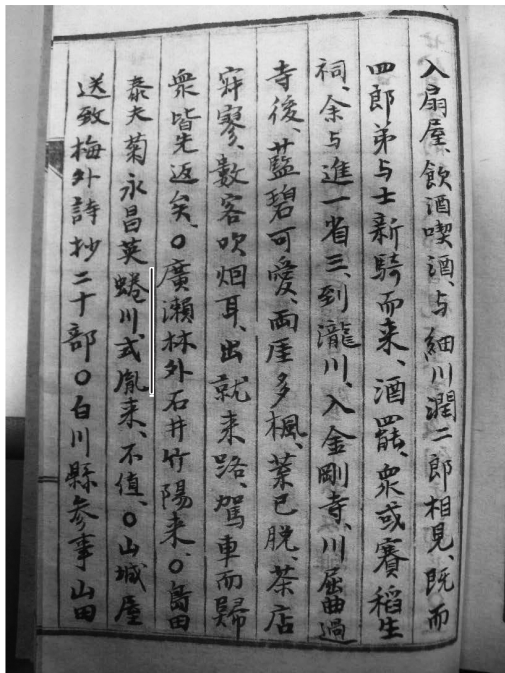 入扇屋、飲酒喫酒、与細川潤二郎相見、既而
四郎弟与士新騎而来、酒罷、衆或賽稲生
祠、余与進一省三、到瀧川、入金剛寺、川屈曲過
寺後、藍碧可愛、両厓多楓、葉已脱、茶店
寂寥、数客吹烟耳、出就来路、駕車而歸
衆皆先返矣、〇廣瀬林外石井竹陽来、〇島田
泰夫菊永昌英蜷川式胤来、不值、〇山城屋
送致梅外詩抄二十部〇白川縣参事山田